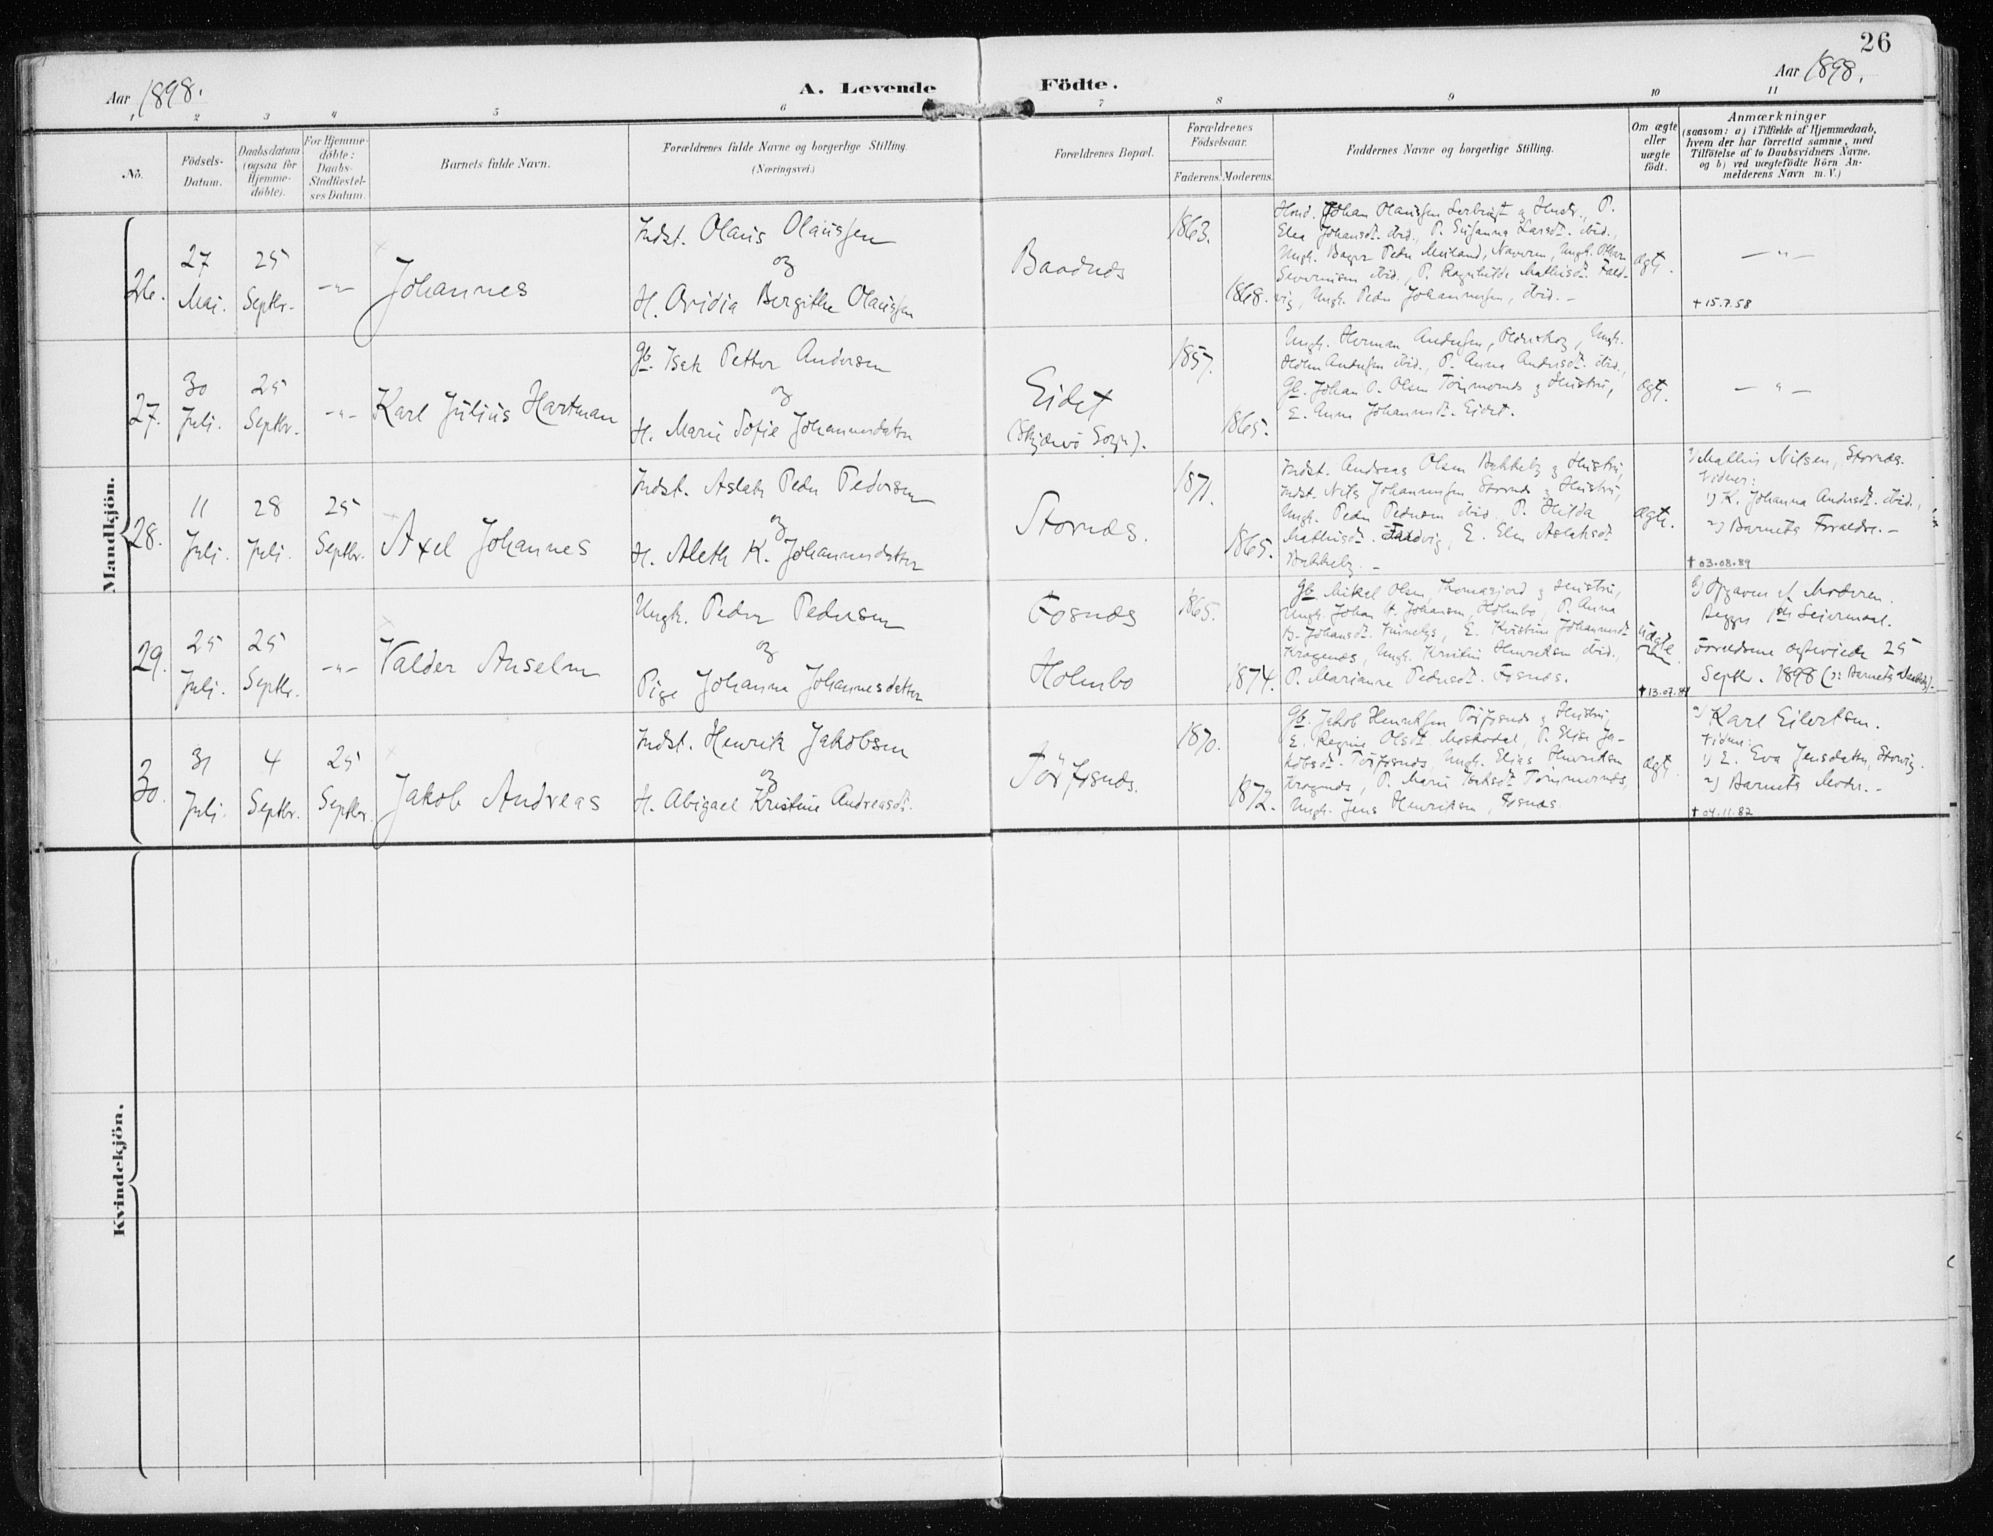 26
Aar 1898.
A. Levende
Födte.
Aar 1898.
1 2 3 4 5 6 7 8 9 10 11
No.
Födsels-
Datum.
Daabsdatum
(ogsaa for
Hjemme-
døbte).
For Hjemme-
döbte:
Daabs-
Stadfæstel-
ses Datum.
Barnets fulde Navn.
Forældrenes fulde Navne og borgerlige Stilling.
(Næringsvei.)
Forældrenes Bopæl.
Forældrenes
Födselsaar.
Faderens. Moderens.
Faddernes Navne og borgerlige Stilling.
Om ægte
eller
uægte
födt.
Anmærkninger
(saasom: a) i Tilfælde af Hjemmedaab,
hvem der har forrettet samme, med
Tilföielse af to Daabsvidners Navne.
og b) ved uægtefödte Börn An-
melderens Navn m. V.)
Mandkjön.
26.
27
Mai.
25
Septbr.
-"-
Johannes
Indst. Olaus Olaussen
og
H. Ovidia Bergithe Olaussen
Baadnæs
1863.
1868.
Johan Olaussen
Elea Johansdt. ibid., P. Susanna Larsdt. ibid.,
P. Ragnhilda Mathisdt.
Ungk. Peder Johannessen, ibid. -
ægt.
-"-
+ 15.7.58
27.
30
Juli.
25
Septbr.
-"-
Karl Julius Hartman
Gb. Isak Petter Andersen
og
H. Marie Sofie Johannesdatter
Eidet
(Skjærvö Sogn).
1857.
1865.
Ungk. Herman Andersen, Ungk.
Andersen ibid., P. Anna Andersdt. ibid.,
Gb. Johan O. Olsen & Hustru,
E. Anne Johannesdt. Eidet.
ægt.
-"-
28.
11
Juli.
28
Juli.
25
Septbr.
Axel Johannes
Indst. Aslak Peder Pedersen
og
H. Aleth K. Johannesdatter
Stornæs.
1871.
1865.
Indst. Andreas Olsen Bakkeby & Hustru,
Indst. Nils Johannessen Stornæs & Hustru,
Ungk. Peder Pedersen ibid. P. Hilda
Mathisdt. E. Elen Aslaksdt.
Bakkeby. -
ægt.
a) Mathis Nilsen, Stornæs.
Vidner:
1) K. Johanna Andersdt. ibid.,
2) Barnets Forældre. -
† 03.08.89
29.
25
Juli.
25
Septbr.
-"-
Valder Anselm
Ungk. Peder Pedersen
og
Pige Johanna Johannesdatter
Fosnæs
Holmbo
1865.
1874.
Gb. Mikal Olsen, & Hustru,
Ungk. Johan A. Johansen, Holmbo, P. Anna
B. Johansdt. E. Kristine Johannesdt.
Kragenæs, Ungk. Henriksen ibid.,
P. Marianne Pedersdt. Fosnæs.
Uægte
b) Opgaven af Moderen.
Begges 1ste Leiermaal.
Forældrene ægteviede 25
Septbr. 1898 (ɔ: Barnets Daabsdag).
30.
31
Juli.
4
Septbr.
25
Septbr.
Jakob Andreas
Indst. Henrik Jakobsen
og
H. Abigael Kristine Andreasdt.
1870.
1872.
Gb. Jakob Henriksen & Hustru,
E. Regine Olsdt. P. Elise Ja-
kobsdt. Ungk. Elias Henriksen
Kragenæs, P. Marie Isaksdt.
Ungk. Jens Henriksen, Fosnæs
ægt.
a) Karl Eilertsen.
Vidner:
1) E. Eva Jensdatter,
2) Barnets Moder. -
† 04.11.82
Kvindekjön.